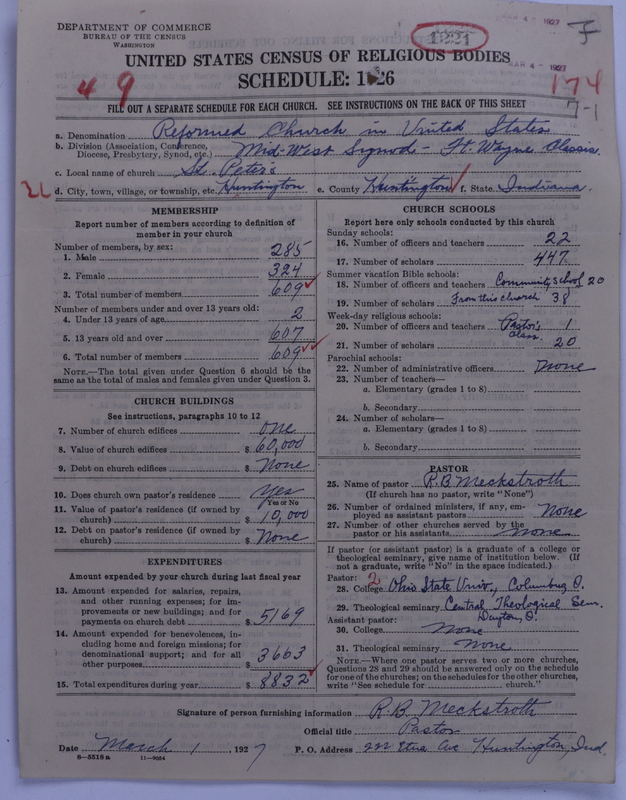 DEPARTMENT OF COMMERCE
BUREAU OF THE CENSUS
WASHINGTON
MAR 4 - 1927
1221
UNITED STATES CENSUS OF RELIGIOUS BODIES
SCHEDULE: 1926
4 9
174
7-1
FILL OUT A SEPARATE SCHEDULE FOR EACH CHURCH. SEE INSTRUCTIONS ON THE BACK OF THIS SHEET
a. Denomination Reformed Church in United States
b. Division (Association, Conference, Diocese, Presbytery, Synod, etc.) Mid-West Synod - Ft. Wayne Classis.
c. Local name of church St. Peter's
d. City, town, village, or township, etc. Huntington e. County Huntington f. State Indiana.
MEMBERSHIP
Report number of members according to definition of
member in your church
Number of members, by sex:
1. Male 285
2. Female 324
3. Total number of members 609
Number of members under and over 13 years old:
4. Under 13 years of age 2
5. 13 years old and over 607
6. Total number of members 609
NOTE.—The total given under Question 6 should be
same as the total of males and females given under Question 3.
CHURCH BUILDINGS
See instructions, paragraphs 10 to 12
7. Number of church edifices one
8. Value of church edifices $ 60,000
9. Debt on church edifices $ None
10. Does church own pastor's residence Yes
Yes or No
11. Value of pastor's residence (if owned by
church) $ 10,000
12. Debt on pastor's residence (if owned by
church) $ None
EXPENDITURES
Amount expended by your church during last fiscal year
13. Amount expended for salaries, repairs,
and other running expenses; for im-
provements or new buildings; and for
payments on church debt $ 5169
14. Amount expended for benevolences, in-
cluding home and foreign missions; for
denominational support; and for all
other purposes $ 3663
15. Total expenditures during year $ 8832
CHURCH SCHOOLS
Report here only schools conducted by this church
Sunday schools:
16. Number of officers and teachers 22
17. Number of scholars 447
Summer vacation Bible schools:
18. Number of officers and teachers Community School 20
19. Number of scholars From this church 38
Week-day religious schools:
20. Number of officers and teachers Pastor's class 1
21. Number of scholars 20
Parochial schools:
22. Number of administrative officers none
23. Number of teachers—
a. Elementary (grades 1 to 8)
b. Secondary
24. Number of scholars—
a. Elementary (grades 1 to 8)
b. Secondary
PASTOR
25. Name of pastor R. B. Meckstroth
(If church has no pastor, write "None")
26. Number of ordained ministers, if any, em-
ployed as assistant pastors None
27. Number of other churches served by the
pastor or his assistants none
If pastor (or assistant pastor) is a graduate of a college or
theological seminary, give name of institution below. (If
not a graduate, write "No" in the space indicated.)
Pastor: 2
28. College Ohio State Univ., Columbus O.
29. Theological seminary Central Theological Sem.
Dayton, O.
Assistant pastor:
30. College None
31. Theological seminary None
NOTE.—Where one pastor serves two or more churches,
Questions 28 and 29 should be answered only on the schedule
for one of the churches; on the schedules for the other churches,
write "See schedule for church."
Signature of person furnishing information R. B. Meckstroth
Official title Pastor
Date March 1, 1927 P. O. Address 222 Etna Ave Huntington, Ind.
8—5518a 11—9054